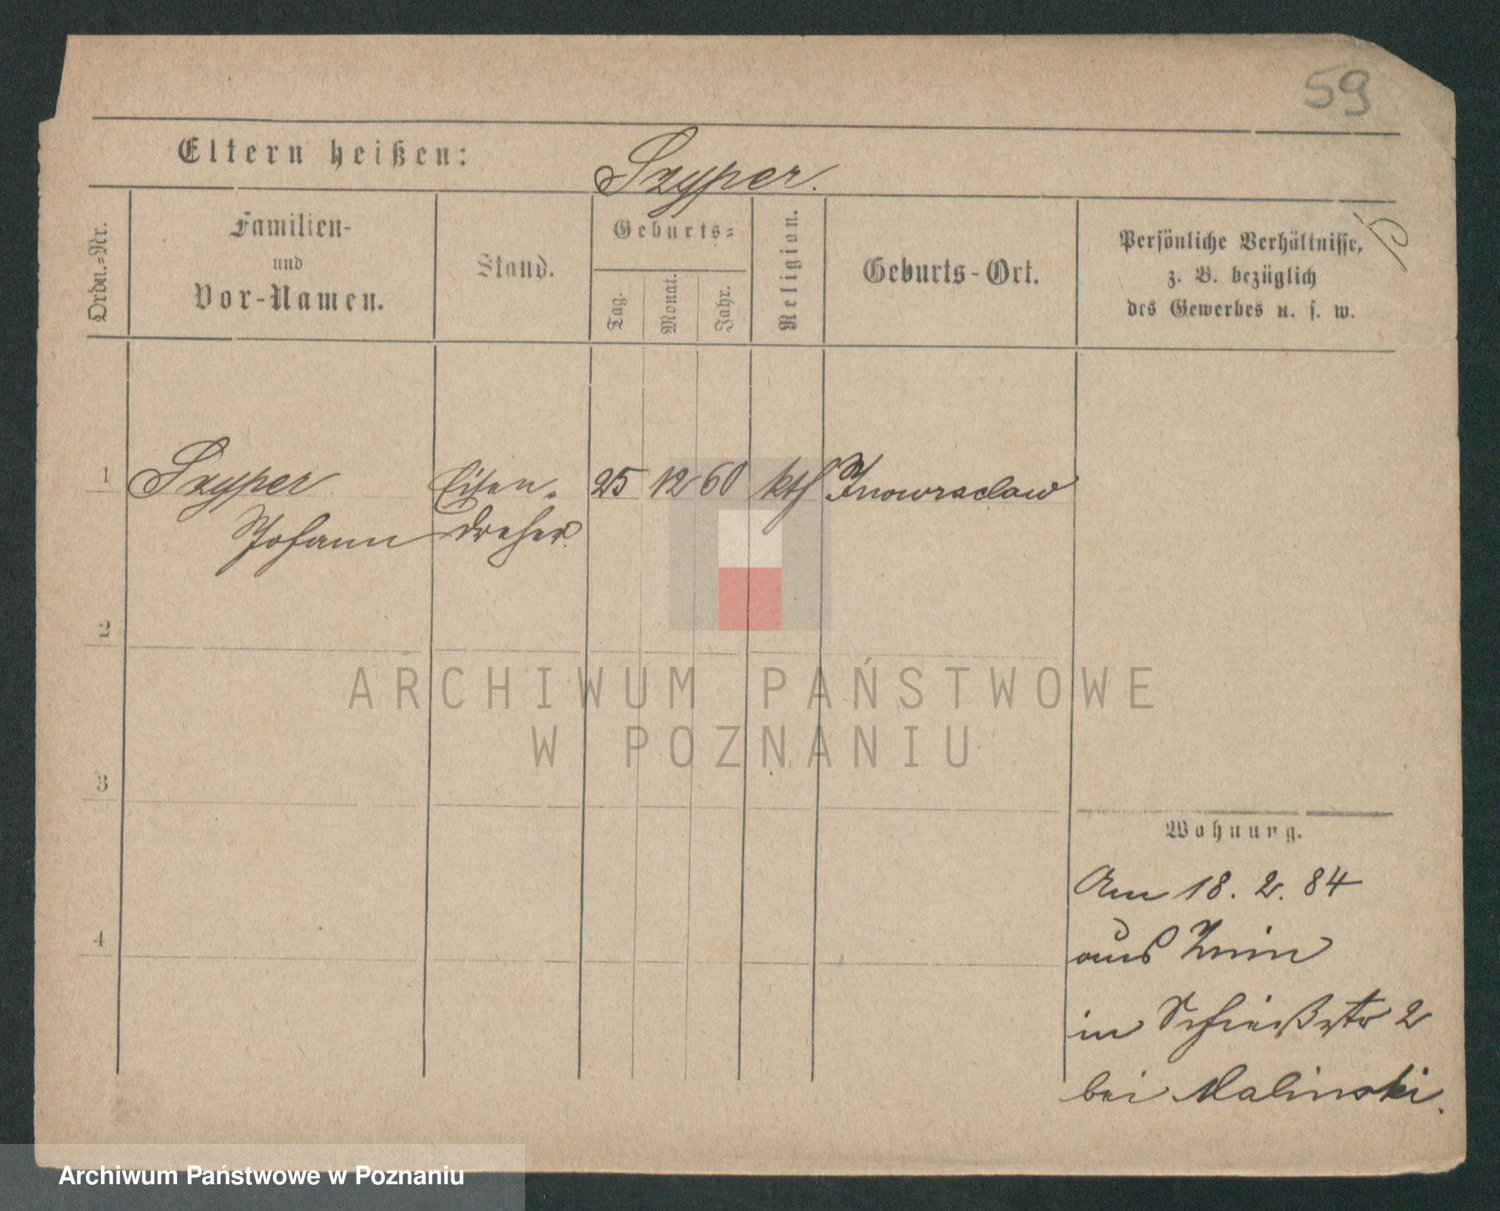 59
Eltern heißen: Szyper.
Ordn.-Nr.
Familien-
und
Vor-Namen.
Stand.
Geburts-
Tag.
Monat.
Jahr.
Religion.
Geburts-Ort.
Persönliche Verhältnisse,
z. B. bezüglich
des Gewerbes u. s. w.
1 Szyper Eisen- 25 12 60 kth Inowraclaw
Johann dreher.
2
3
4
Wohnung.
Am 18. 2. 84
aus Znin
in Schießstr 2
bei Malinski.
ARCHIWUM PAŃSTWOWE
W POZNANIU
Archiwum Państwowe w Poznaniu